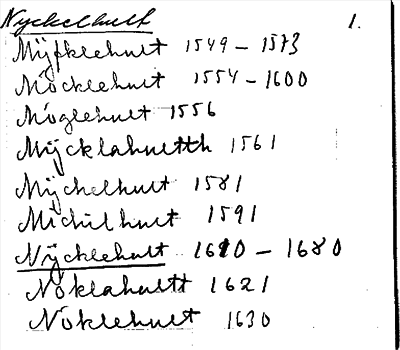 Nyckelhult 1.
Mÿfklehult 1549 – 1573
Möcklehult 1554 – 1600
Möglehult 1556
Mÿcklahultth 1561
Mÿckelhult 1581
Michilhult 1591
Nÿcklehult 1610 – 1680
Nöklahultt 1621
Nöklehult 1630